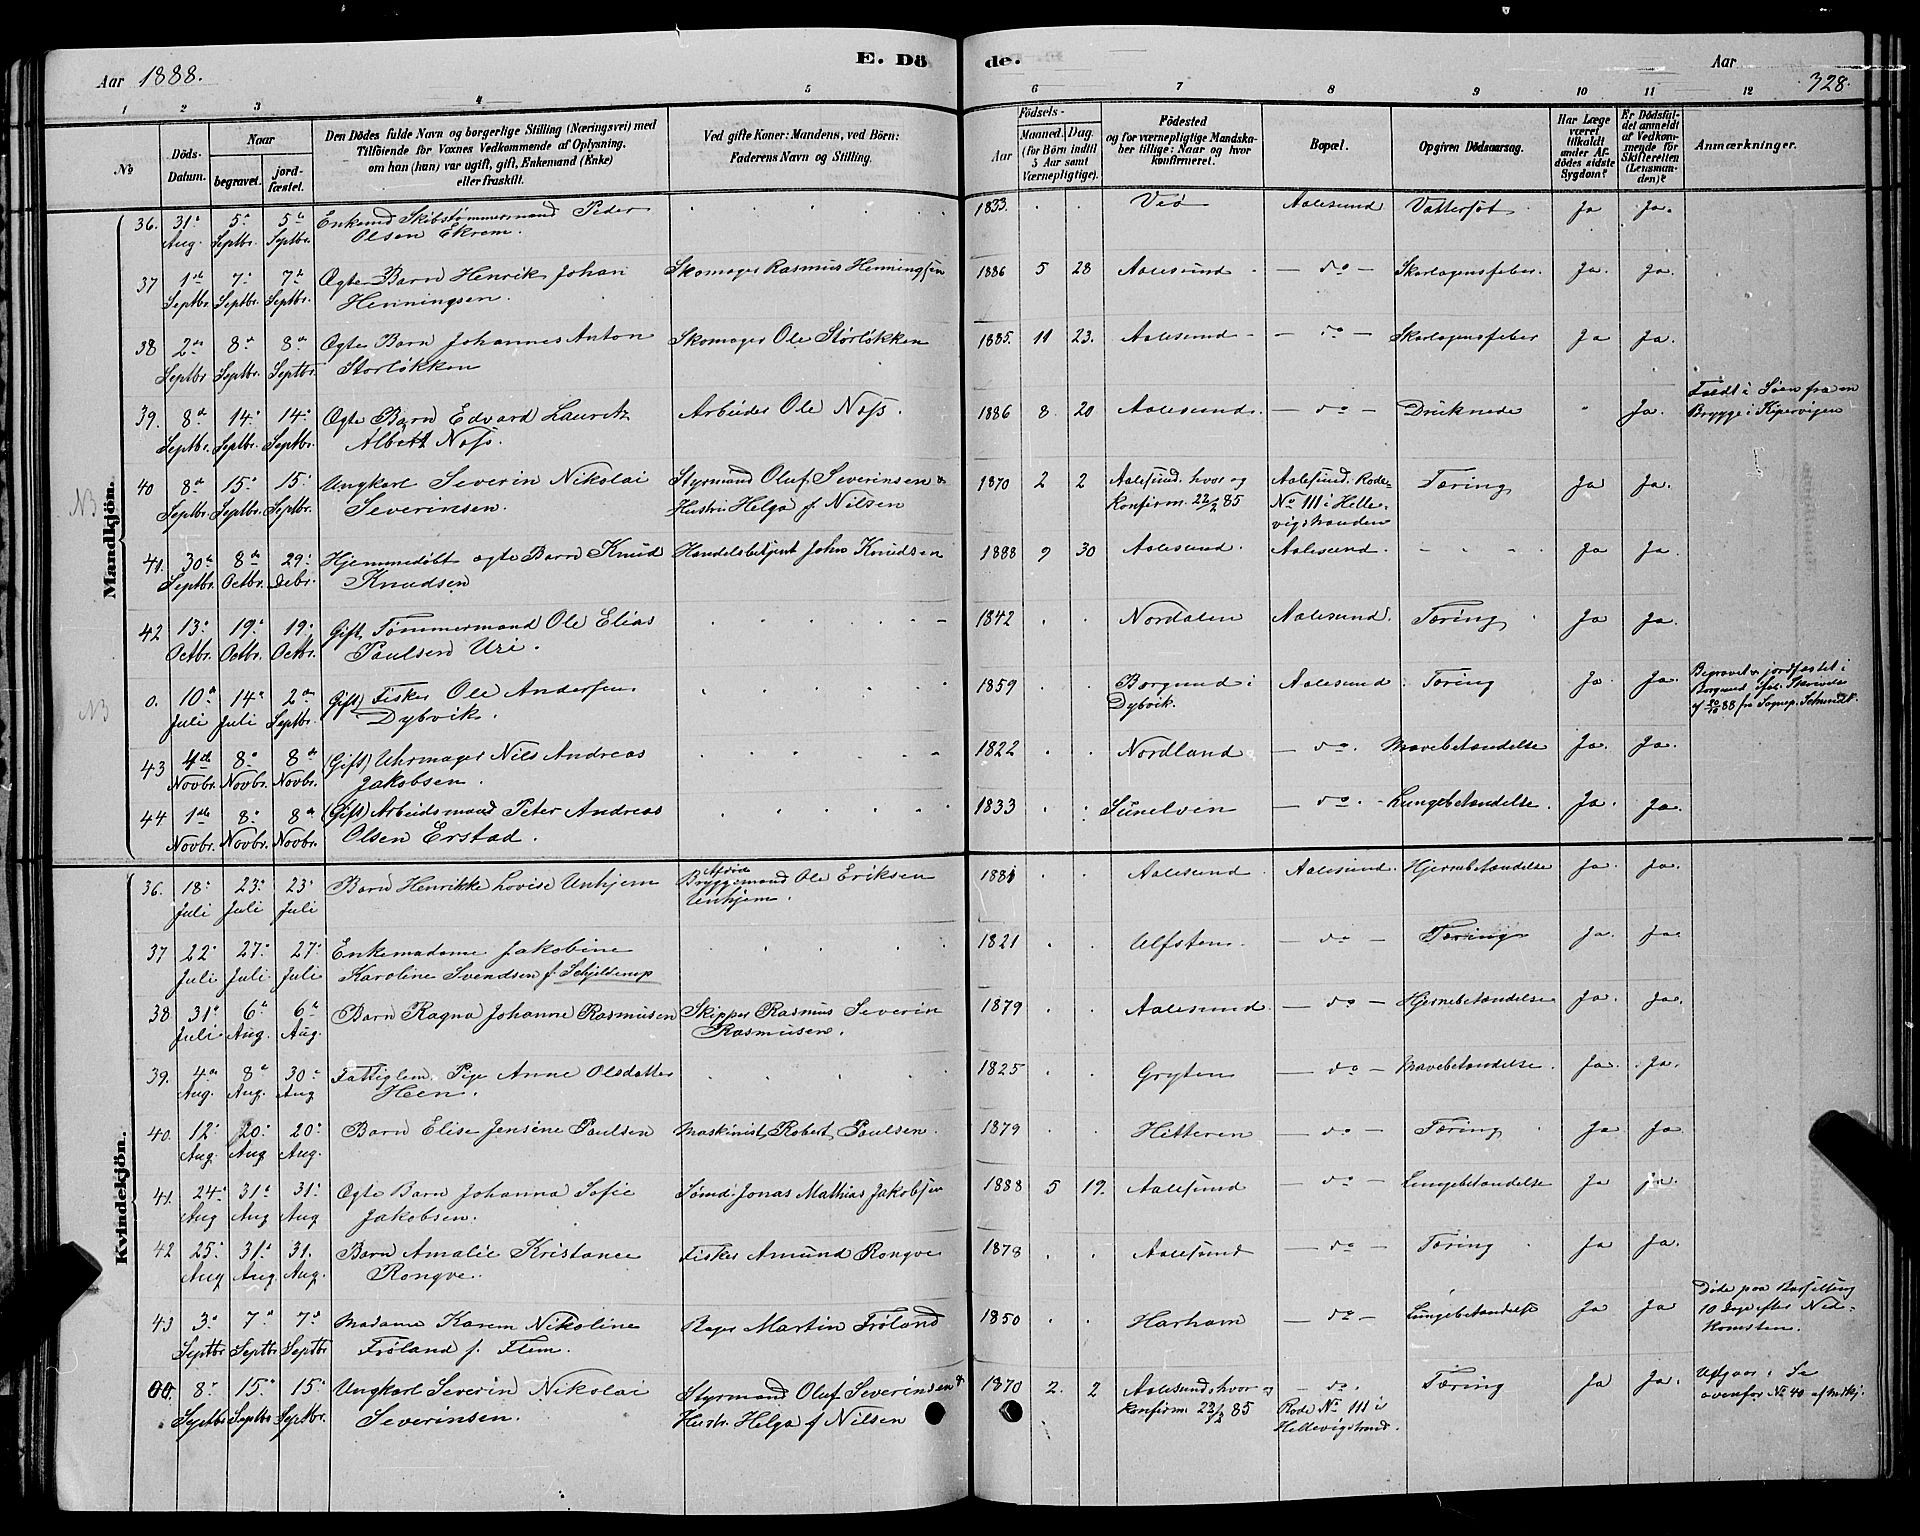 Aar 1888. E. Dö de. Aar 328.
1 2 3 4 5 6 7 8 9 10 11 12
No
Döds-Datum.
Naar
begravet.
jord-fæstet.
Den Dödes fulde Navn og borgerlige Stilling (Næringsvei) med
Tilföiende for Voxnes Vedkommende af Oplysning,
om han (hun) var ugift, gift, Enkemand (Enke)
eller fraskilt.
Ved gifte Koner: Mandens, ved Börn:
Faderens Navn og Stilling.
Födsels-
Aar
Maaned. Dag.
(for Börn indtil
5 Aar samt
Værnepligtige).
Födested
og for værnepligtige Mandska-
ber tillige: Naar og hvor
konfirmeret.
Bopæl.
Opgiven Dödsaarsag.
Har Læge
været
tilkaldt
under Af-
dödes sidste
Sygdom?
Er Dödsfal-
det anmeldt
af Vedkom-
mende for
Skifteretten
(Lensman-
den)?
Anmærkninger.
Mandkjön.
36. 31 5 5 Enkemd Skibstømmermand Peder 1833. Veø Aalesund Vattersot Ja Ja.
Aug. Septbr. Septbr. Olsen Ekrem.
37 1 7 7 Ægte Barn Henrik Johan Skomager Rasmus Henningsen 1886 5 28 Aalesund — do — Skarlagensfeber. Ja. Ja.
Septbr. Septbr. Septbr. Henningsen.
38 2 8 8 Ægte Barn Johannes Anton Skomager Ole Størløkken 1885. 11 23. Aalesund — do — Skarlagensfeber Ja Ja.
Septbr Septbr. Septbr. Storløkken
39. 8 14 14 Ægte Barn Edvard Lauritz Arbeider Ole Nass. 1886 8. 20 Aalesund. — do — Druknede " Ja. Faldt i Søen fra en
Septbr. Septbr. Septbr. Albert Nass. Brygge i Kipervigen
NB 40 8 15 15 Ungkarl Severin Nikolai Styrmand Oluf Severinsen & 1870 2 2 Aalesund. hvor og Aalesund. Rode Tæring Ja Ja.
Septbr. Septbr. Septbr. Severinsen. Hustru Helga f Nilsen konfirm. 22/2 85 No 111 i Helle-
vigstranden
41. 30 8 29 Hjemmedøbt ægte Barn Knud Handelsbetjent John Knudsen 1888 9 30 Aalesund. Aalesund. Ja Ja.
Septbr. Octbr. Debr. Knudsen
42 13 19 19 Gift, Tømmermand Ole Elias 1842 Nordalen Aalesund. Tæring Ja Ja.
Octbr. Octbr. Octbr. Paulsen Uri.
NB 0. 10 14 2 (Gift) Fisker Ole Andersen 1859 Borgund i Aalesund Tæring Ja Ja. Begravet & jordfæstet i
Juli Juli Septbr. Dybvik. Dybvik. Borgund
88 fra Sognep. Schmidt.
43 4 8 8 (Gift) Uhrmager Nils Andreas 1822 Nordland — do. Mavebetændelse Ja. Ja.
Novbr. Novbr. Novbr. Jakobsen.
44. 1 8 8 (Gift) Arbeidsmand Peter Andreas 1833 Sunelven — do. Lungebetændelse. Ja. Ja.
Novbr. Novbr. Novbr. Olsen Erstad.
Kvindekjön.
36. 18 23 23 Barn Henrikke Lovise Unhjem Afdøde Bryggemand Ole Eriksen 1881 Aalesund Aalesund. Hjernebetændelse Ja. Ja.
Juli Juli Juli Unhjem.
37 22 27 27 Enkemadame Jakobine 1821 Ulfsten — do — Tæring Ja. Ja.
Juli Juli Juli Karoline Svendsen f. Schjelderup
38 31 6 6 Barn Ragna Johanne Rasmusen Skipper Rasmus Severin 1879 Aalesund. — do — Hjernebetændelse Ja. Ja.
Juli Aug. Aug. Rasmusen.
39. 4 8 30 Fattiglem Pige Anne Olsdatter 1825 Gryten — do — Mavebetændelse. Ja. Ja.
Aug. Aug. Aug Heen.
40. 12 20 20 Barn Elise Jensine Paulsen Maskinist Robert Paulsen. 1879 Hitteren — do — Tæring. Ja Ja
Aug. Aug Aug.
41. 24 31 31 Ægte Barn Johanna Sofie Sømd. Jonas Mathias Jakobsen 1888 5 19. Aalesund — do — Lungebetændelse Ja Ja.
Aug Aug Aug Jakobsen.
42 25 31 31. Barn Amalie Kristance Fisker Amund Rongve 1878 Aalesund — do — Tæring Ja Ja.
Aug Aug. Aug. Rongve.
43 3 7 7 Madame Karen Nikoline Bager Martin Frøland 1850 Harham — do — Lungebetændelse Ja Ja Døde paa Barselseng
Septbr Septbr Septbr Frøland f. Flem. 10 Dage efter Ned-
komsten.
00. 8 15 15 Ungkarl Severin Nikolai Styrmand Oluf Severinsen & 1870 2. 2 Aalesund hvor og — do. Tæring Ja Ja. Udgaar. Se
Septbr Septbr. Septbr. Severinsen. Hustr. Helga f Nilsen konfirm. 22/2 85 Rode No 111 i ovenfor No 40 af Mdkj.
Hellevigstrand.